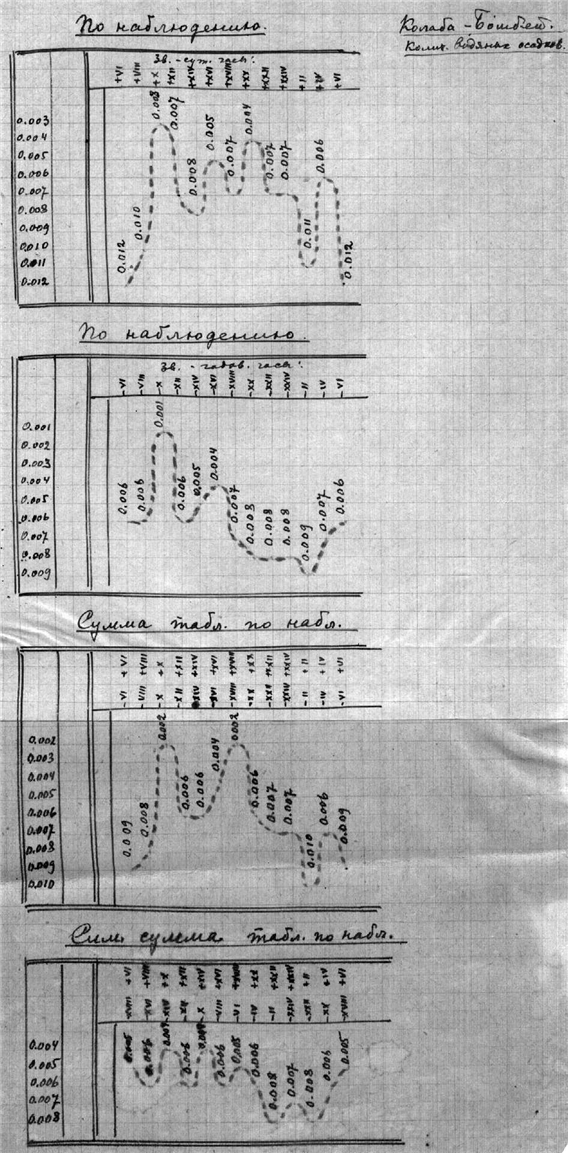 По наблюдению.
Колаба - Бомбей.
Колич. водяных осадков.
Зв. - сут. часы:
+VI +VIII +X +XII +XIV +XVI +XVIII +XX +XXII +XXIV +II +IV +VI
0.003
0.004
0.005
0.006
0.007
0.008
0.009
0.010
0.011
0.012
0.012 0.010 0.003 0.007 0.008 0.005 0.007 0.004 0.007 0.007 0.011 0.006 0.012
По наблюдению.
Зв. - годов. часы:
-VI -VIII -X -XII -XIV -XVI -XVIII -XX -XXII -XXIV -II -IV -VI
0.001
0.002
0.003
0.004
0.005
0.006
0.007
0.008
0.009
0.006 0.006 0.001 0.006 0.005 0.004 0.007 0.008 0.008 0.008 0.009 0.007 0.006
Сумма табл. по набл.
+VI +VIII +X +XII +XIV +XVI +XVIII +XX +XXII +XXIV +II +IV +VI
-VI -VIII -X -XII -XIV -XVI -XVIII -XX -XXII -XXIV -II -IV -VI
0.002
0.003
0.004
0.005
0.006
0.007
0.008
0.009
0.010
0.009 0.008 0.002 0.006 0.006 0.004 0.002 0.006 0.007 0.007 0.010 0.006 0.009
Сим. сумма табл. по набл.
+VI +VIII +X +XII +XIV +XVI +XVIII +XX +XXII +XXIV +II +IV +VI
-XVIII -XVI -XIV -XII -X -VIII -VI -IV -II -XXIV -XXII -XX -XVIII
0.004
0.005
0.006
0.007
0.008
0.005 0.006 0.006 0.006 0.005 0.006 0.008 0.007 0.008 0.006 0.005